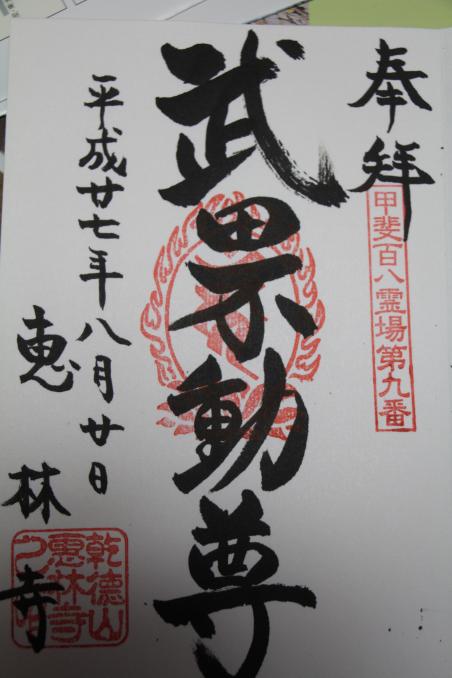 奉拝
甲斐百八霊場第九番
武田不動尊
平成廿七年八月廿日
恵林寺
乾徳山
恵林寺